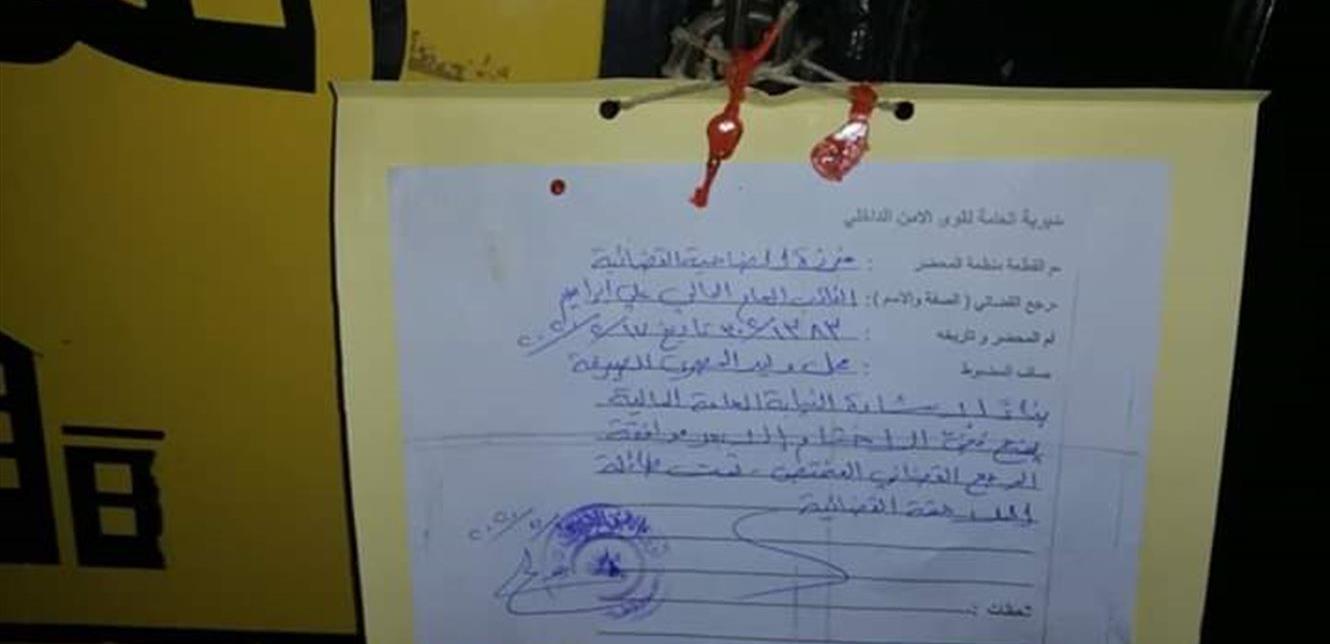 مديرية العامة لقوى الامن الداخلي
القطعة منظمة المحضر : مفرزة الضاحية القضائية
مرجع القضائي ( الصفة والاسم ) : النائب العام المالي علي ابراهيم
المحضر وتاريخه : ٣٠٢/١٣٨٣ تاريخ
المضبوط : محل وليد للصيرفة
بناءً لاشارة النيابة العامة المالية
يمنع نزع الاختام الا بعد موافقة
المرجع القضائي المختص، تحت طائلة
الملاحقة القضائية